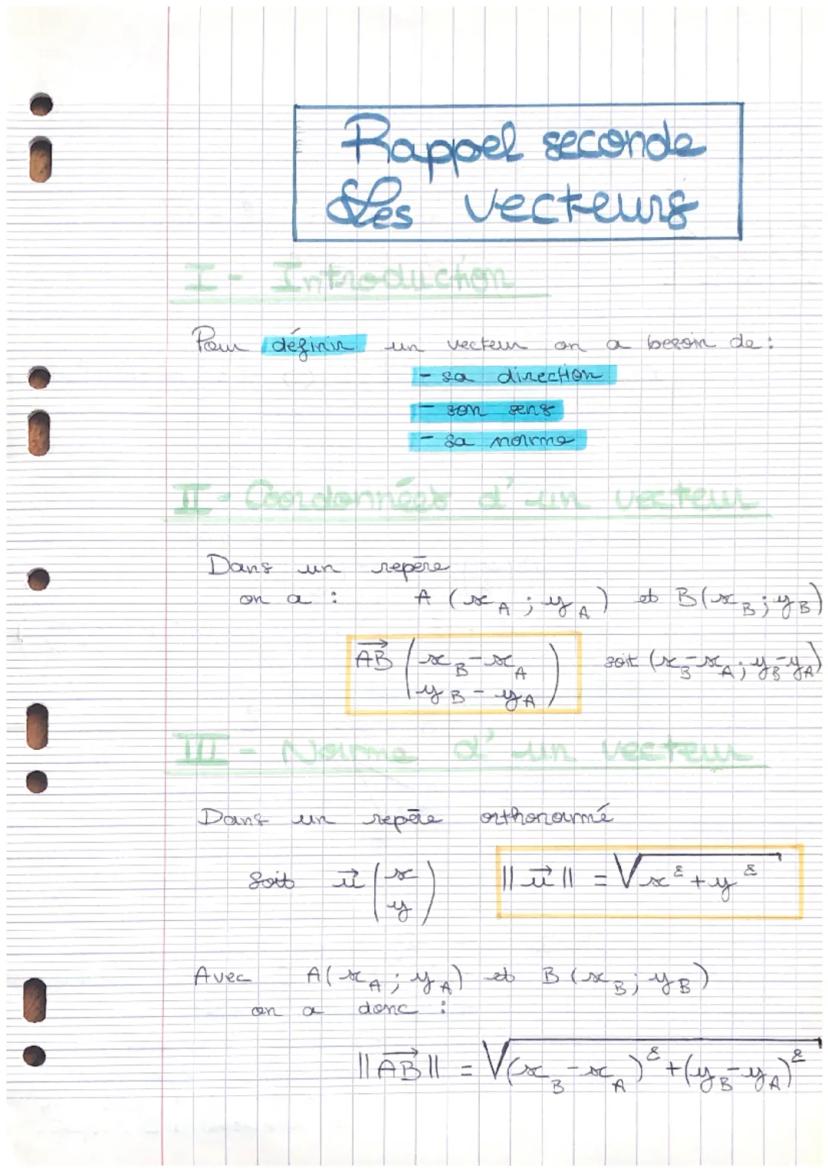 Rappel seconde
Les vecteurs
I - Introduction
Pour définir un vecteur on a besoin de :
- sa direction
- son sens
- sa norme
II - Coordonnées d'un vecteur
Dans un repère
on a : A (x_A ; y_A) et B(x_B ; y_B)
\overrightarrow{AB} \begin{pmatrix} x_B - x_A \\ y_B - y_A \end{pmatrix} soit (x_B - x_A ; y_B - y_A)
III - Norme d'un vecteur
Dans un repère orthonormé
Soit \vec{u} \begin{pmatrix} x \\ y \end{pmatrix} ||\vec{u}|| = \sqrt{x^2 + y^2}
Avec A(x_A ; y_A) et B(x_B ; y_B)
on a donc :
||\overrightarrow{AB}|| = \sqrt{(x_B - x_A)^2 + (y_B - y_A)^2}